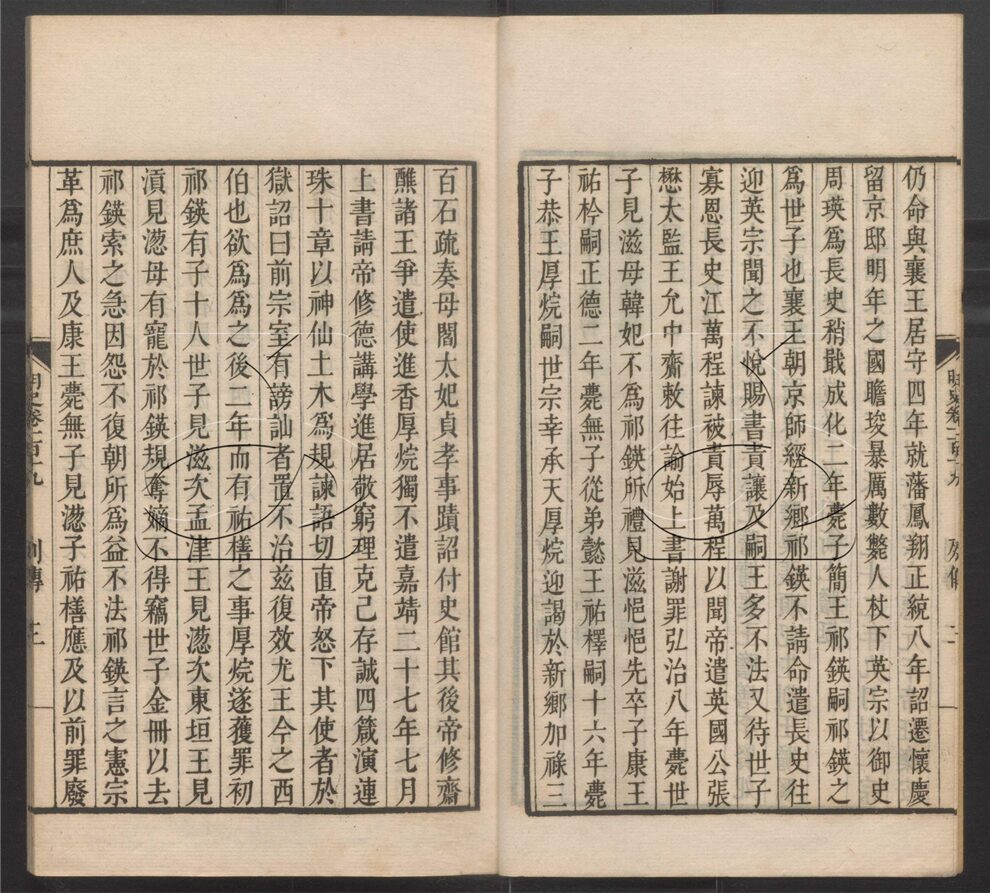 仍命與襄王居守四年就藩鳳翔正統八年詔遷懷慶
留京邸明年之國瞻埈暴厲數斃人杖下英宗以御史
周瑛爲長史稍戢成化二年薨子簡王祁鍈嗣祁鍈之
爲世子也襄王朝京師經新鄉祁鍈不請命遣長史往
迎英宗聞之不悅賜書責讓及嗣王多不法又待世子
寡恩長史江萬程諫被責辱萬程以聞帝遣英國公張
懋太監王允中齋敕往諭始上書謝罪弘治八年薨世
子見滋母韓妃不爲祁鍈所禮見滋悒悒先卒子康王
祐枔嗣正德二年薨無子從弟懿王祐檡嗣十六年薨
子恭王厚烷嗣世宗幸承天厚烷迎謁於新鄉加祿三
明史卷一百十九 列傳 二
百石疏奏母閻太妃貞孝事蹟詔付史館其後帝修齋
醮諸王爭遣使進香厚烷獨不遣嘉靖二十七年七月
上書請帝修德講學進居敬窮理克己存誠四箴演連
珠十章以神仙土木爲規諫語切直帝怒下其使者於
獄詔曰前宗室有謗訕者置不治兹復效尤王今之西
伯也欲爲爲之後二年而有祐橏之事厚烷遂獲罪初
祁鍈有子十人世子見滋次孟津王見濍次東垣王見
湏見濍母有寵於祁鍈規奪嫡不得竊世子金冊以去
祁鍈索之急因怨不復朝所爲益不法祁鍈言之憲宗
革爲庶人及康王薨無子見濍子祐橏應及以前罪廢
明史卷一百十九 列傳 三